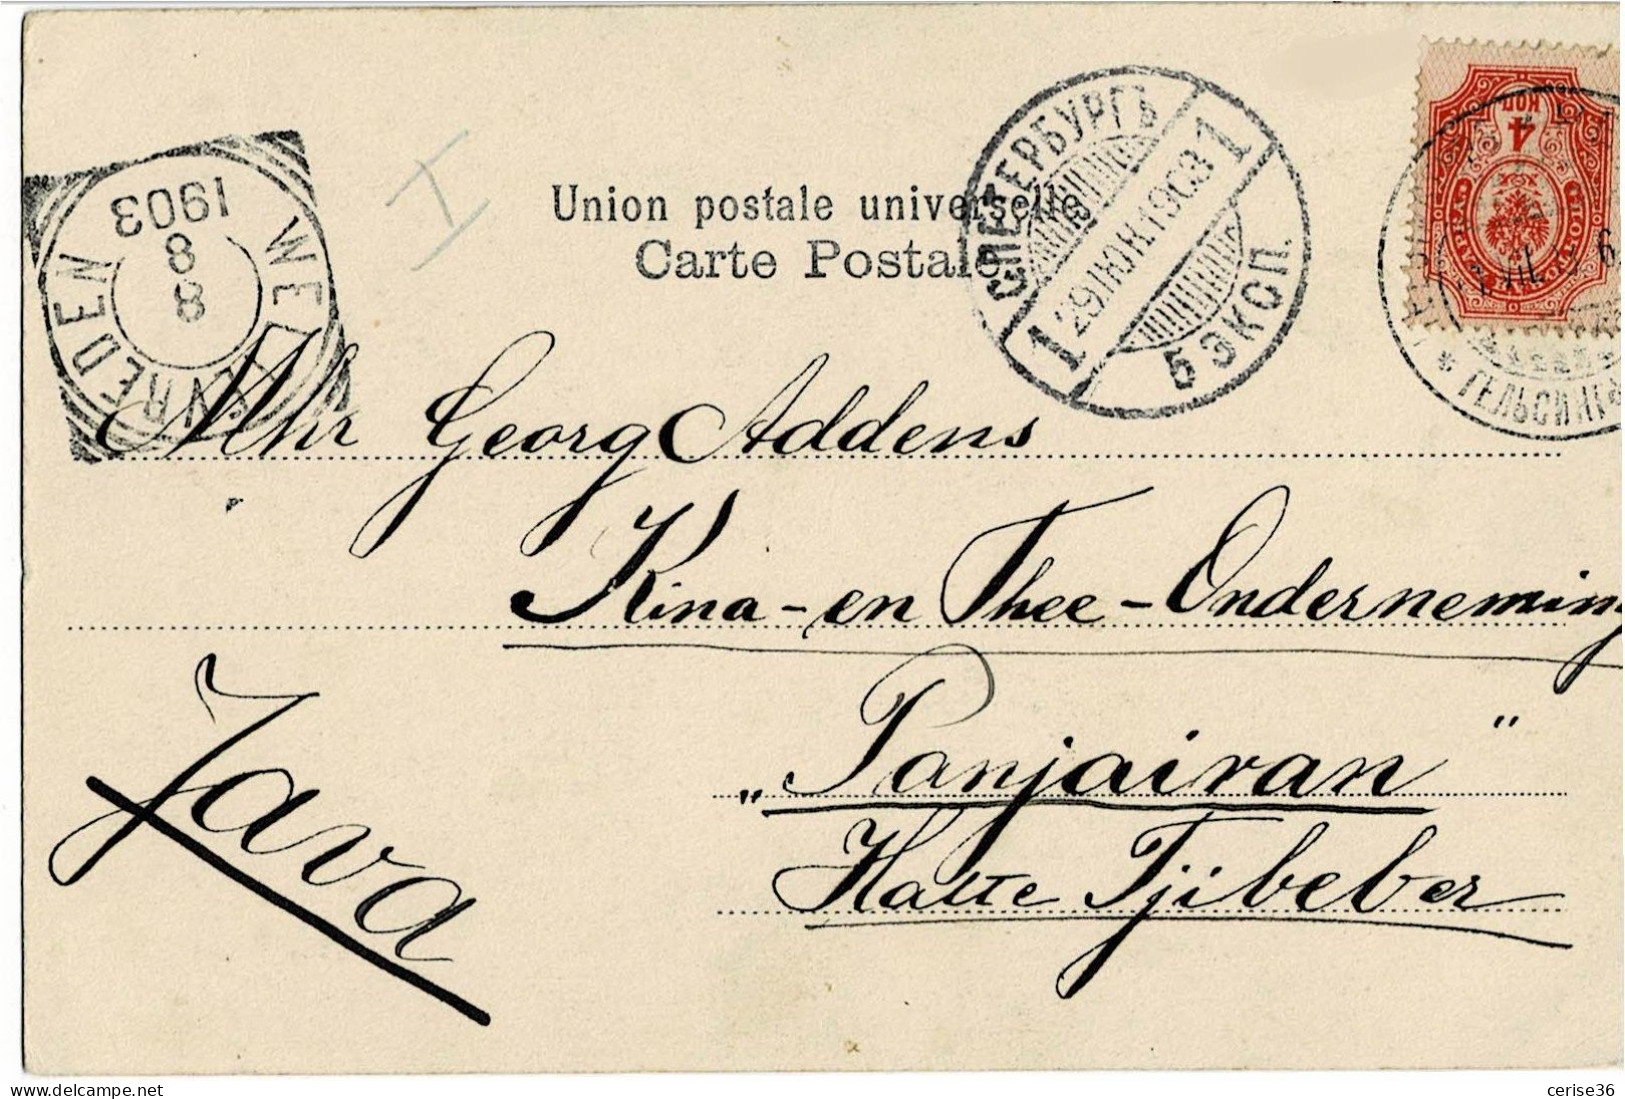 Union postale universelle
Carte Postale
С.ПЕТЕРБУРГЪ
1 29 ІЮН.1903 1
5 ЭКСП.
WELTEVREDEN
8
8
1903
4
КОП
ГЕЛЬСИНГФ
Mhr Georg Addens
Kina-en Thee-Onderneming
„Panjairan"
Halte Tjibeber
Java
cerise36